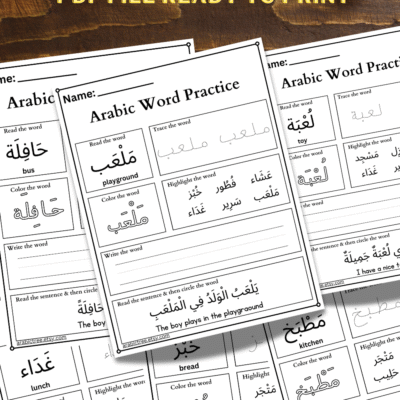 PDF FILE READY TO PRINT
Name:
Arabic Word Practice
Read the word
مَلْعَب
playground
Trace the word
ملعب ملعب
Color the word
مَلْعَب
Highlight the word
عَشَاء فُطُور خُبْز
مَلْعَب سَرِير غَدَاء
Write the word
Read the sentence & then circle the word
يَلْعَبُ الْوَلَدُ فِي الْمَلْعَبِ
The boy plays in the playgraound
arabictree.etsy.com
Name:
Arabic
Read the word
حَافِلَة
bus
Color the word
حَافِلَة
Write the word
Read the sentence & then
حَافِلَةُ
The boy
arabictree.etsy.com
Arabic Word Practice
Read the word
لُعْبَة
toy
Trace the word
لعبة
Color the word
لُعْبَة
Highlight the word
مَسْجِد
سَرِير غَدَاء
the word
the sentence & then circle the word
لُعْبَةٌ جَمِيلَةٌ
I have a nice
غَدَاء
lunch
خُبْز
bread
Highlight the
مَتْجَر
مَطْبَخ
kitchen
Color the word
مَطْبَخ
Highlight
حَلِيب
مَتْجَر